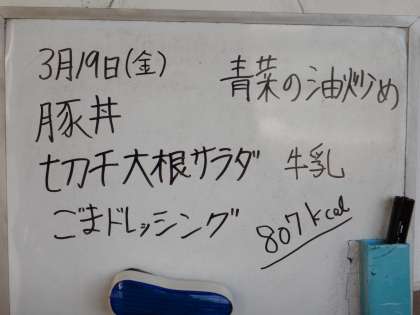 3月19日(金)
青菜の油炒め
豚丼
切干大根サラダ 牛乳
ごまドレッシング
807kcal